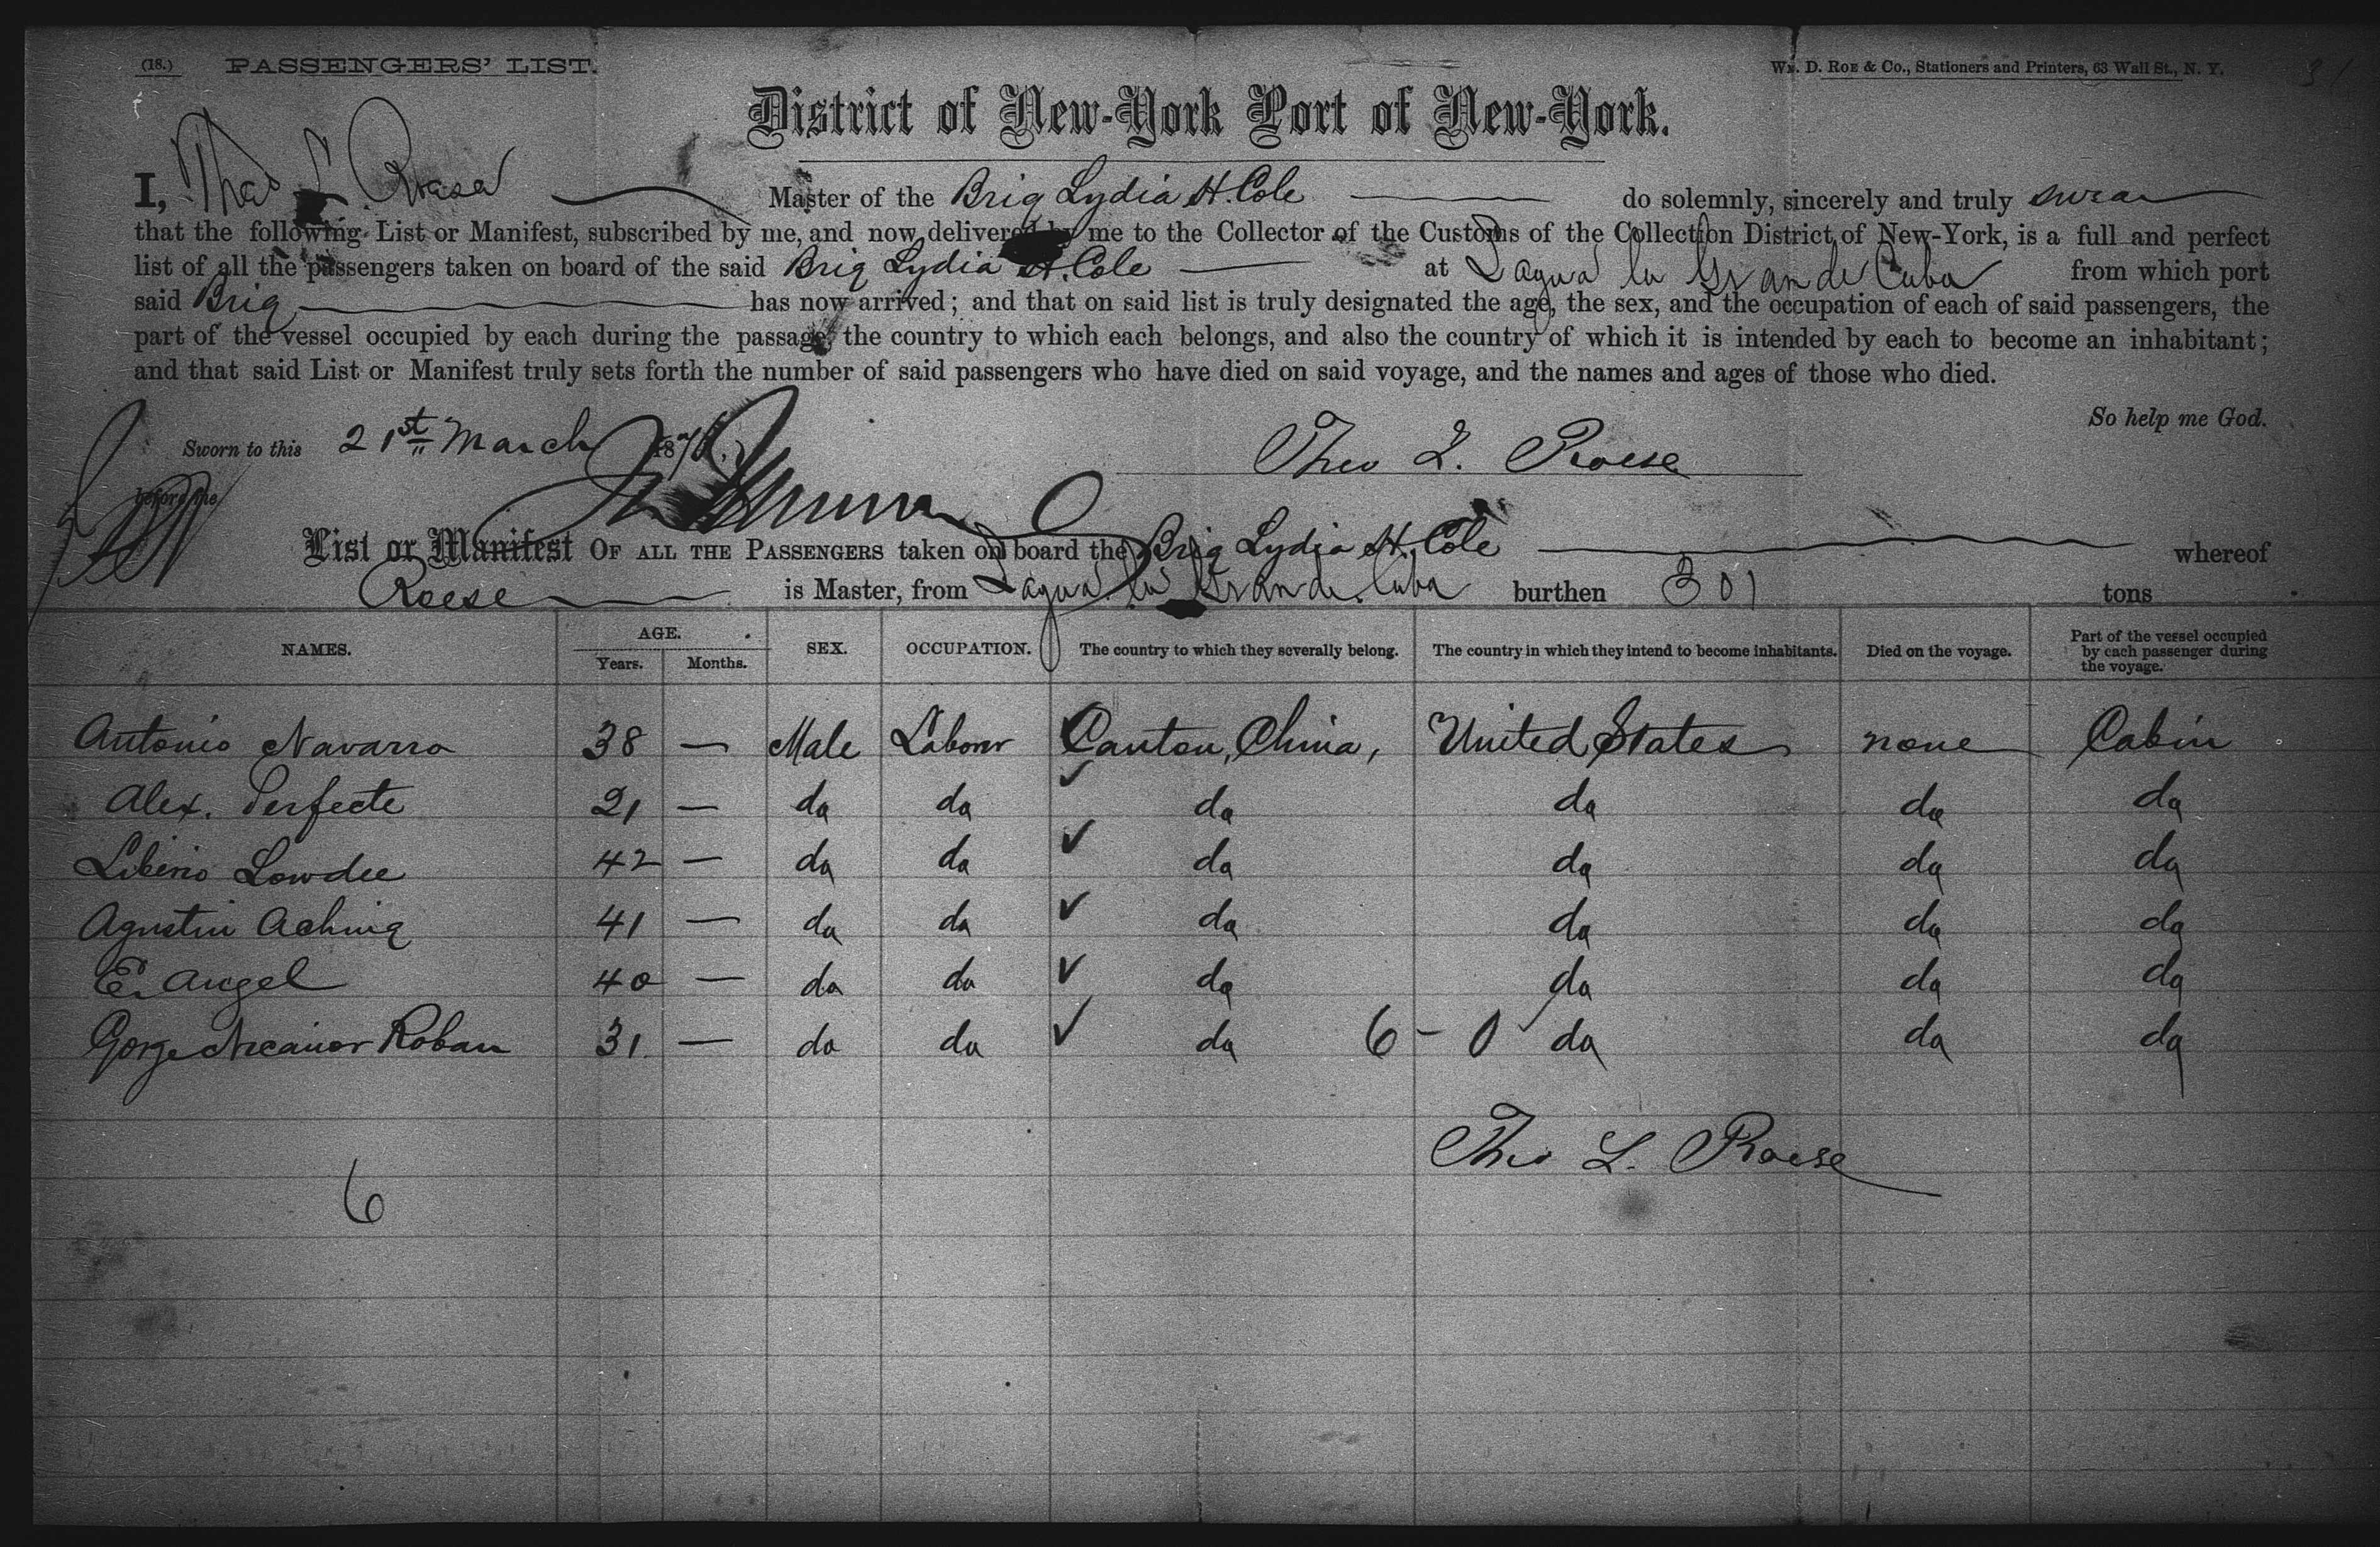 (18.) PASSENGERS' LIST. Wm. D. Roe & Co., Stationers and Printers, 63 Wall St., N. Y. 31
District of New-York Port of New-York.
I, Theo L. Roese Master of the Brig Lydia H. Cole do solemnly, sincerely and truly swear
that the following List or Manifest, subscribed by me, and now delivered by me to the Collector of the Customs of the Collection District of New-York, is a full and perfect
list of all the passengers taken on board of the said Brig Lydia H. Cole at Sagua la Grande Cuba from which port
said Brig has now arrived; and that on said list is truly designated the age, the sex, and the occupation of each of said passengers, the
part of the vessel occupied by each during the passage, the country to which each belongs, and also the country of which it is intended by each to become an inhabitant;
and that said List or Manifest truly sets forth the number of said passengers who have died on said voyage, and the names and ages of those who died.
So help me God.
Sworn to this 21st March 187
before me
Theo L. Roese
List or Manifest OF ALL THE PASSENGERS taken on board the Brig Lydia H. Cole whereof
Roese is Master, from Sagua la Grande. Cuba burthen 301 tons
NAMES. AGE. Years. Months. SEX. OCCUPATION. The country to which they severally belong. The country in which they intend to become inhabitants. Died on the voyage. Part of the vessel occupied by each passenger during the voyage.
Antonio Navarro 38 — Male Laborer Canton, China, United States none Cabin
Alex. Perfecte 21 — do do ✓ do do do do
Liberio Lowdee 42 — do do ✓ do do do do
Agustin Aching 41 — do do ✓ do do do do
E. Angel 40 — do do ✓ do do do do
Gorge Nicanor Roban 31 — do do ✓ do 6 - 0 do do do
Theo L. Roese
6